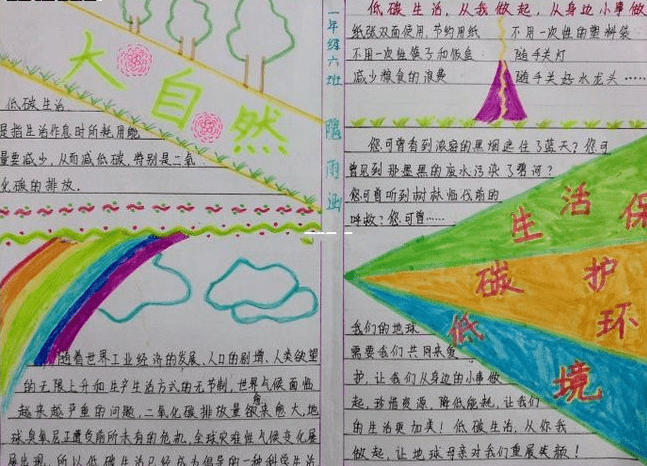 大自然
低碳生活
是指生活作息时所耗用能
量要减少，从而减低碳，特别是二氧
化碳的排放．
随着世界工业经济的发展、人口的剧增、人类欲望
的无限上升和生产生活方式的无节制，世界气候面临
越来越严重的问题，二氧化碳排放量愈来愈大，地
球臭氧层正遭受前所未有的危机，全球灾难性气候变化屡
屡出现，所以低碳生活已经成为倡导的一种科学生活
一年级六班
雨涵
低碳生活，从我做起，从身边小事做
纸张双面使用，节约用纸 不用一次性的塑料袋
不用一次性筷子和饭盒 随手关灯
减少粮食的浪费 随手关好水龙头……
您可曾看到浓密的黑烟遮住了蓝天？您可
曾见到那墨黑的废水污染了碧河？
您可曾听到树林临伐前的
呼救？您可曾……
生活保
碳护
低环
境
我们的地球
需要我们共同来爱
护，让我们从身边的小事做
起，珍惜资源、降低能耗，让我们
的生活更加美！低碳生活，从你我
做起，让地球母亲对我们重展笑颜！